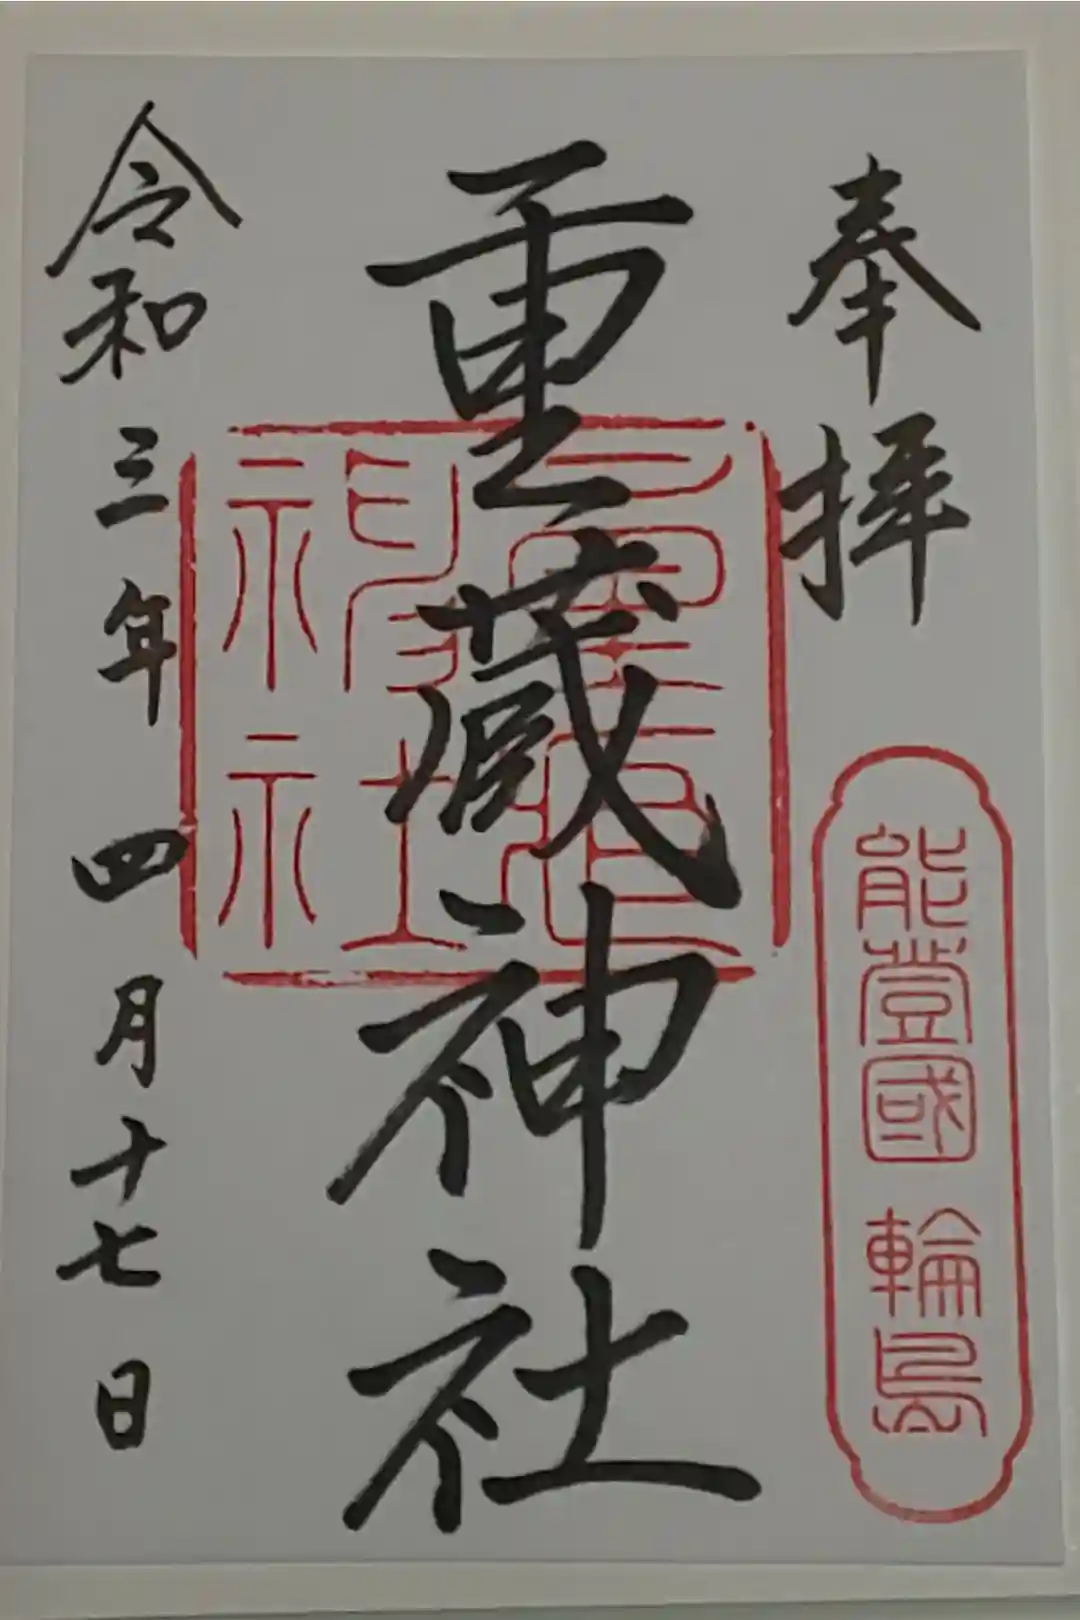 奉拝
能登國 輪島
重蔵神社
令和三年四月十七日